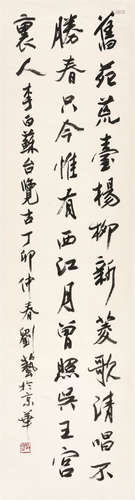 舊苑荒臺楊柳新菱歌清唱不
勝春只今惟有西江月曾照吳王宮
裏人李白蘇台覽古丁卯仲春劉藝於京華